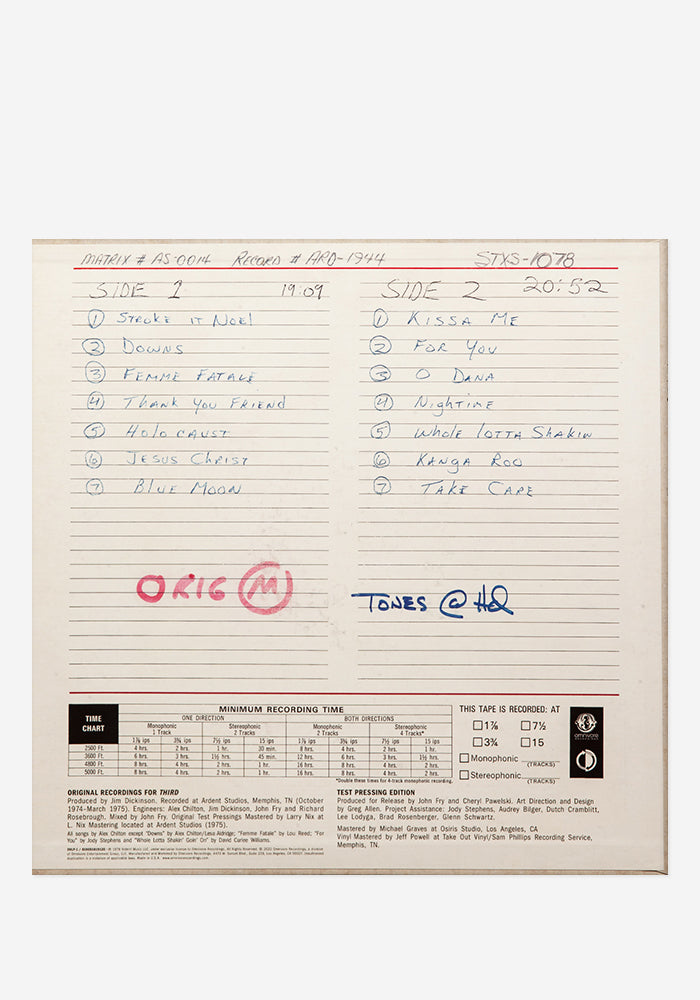 MATRIX # AS-0014 RECORD # ARD-1944 STXS-1078
SIDE 1 19:09
1 STROKE IT NOEL
2 DOWNS
3 FEMME FATALE
4 THANK YOU FRIEND
5 HOLOCAUST
6 JESUS CHRIST
7 BLUE MOON
SIDE 2 20:52
1 KISSA ME
2 FOR YOU
3 O DANA
4 NIGHTIME
5 WHOLE LOTTA SHAKIN
6 KANGA ROO
7 TAKE CARE
ORIG M
TONES @ Hd
TIME CHART
MINIMUM RECORDING TIME
ONE DIRECTION BOTH DIRECTIONS
Monophonic 1 Track Stereophonic 2 Tracks Monophonic 2 Tracks Stereophonic 4 Tracks*
1⅞ ips 3¾ ips 7½ ips 15 ips 1⅞ ips 3¾ ips 7½ ips 15 ips
2500 Ft. 4 hrs. 2 hrs. 1 hr. 30 min. 8 hrs. 4 hrs. 2 hrs. 1 hr.
3600 Ft. 6 hrs. 3 hrs. 1½ hrs. 45 min. 12 hrs. 6 hrs. 3 hrs. 1½ hrs.
4800 Ft. 8 hrs. 4 hrs. 2 hrs. 1 hr. 16 hrs. 8 hrs. 4 hrs. 2 hrs.
5000 Ft. 8 hrs. 4 hrs. 2 hrs. 1 hr. 16 hrs. 8 hrs. 4 hrs. 2 hrs.
*Double these times for 4-track monophonic recording.
THIS TAPE IS RECORDED: AT
1⅞ 7½
3¾ 15
Monophonic (TRACKS)
Stereophonic (TRACKS)
omnivore
RECORDINGS
ORIGINAL RECORDINGS FOR THIRD
Produced by Jim Dickinson. Recorded at Ardent Studios, Memphis, TN (October
1974-March 1975). Engineers: Alex Chilton, Jim Dickinson, John Fry and Richard
Rosebrough. Mixed by John Fry. Original Test Pressings Mastered by Larry Nix at
L. Nix Mastering located at Ardent Studios (1975).
All songs by Alex Chilton except "Downs" by Alex Chilton/Lesa Aldridge; "Femme Fatale" by Lou Reed; "For
You" by Jody Stephens and "Whole Lotta Shakin' Goin' On" by David Curlee Williams.
TEST PRESSING EDITION
Produced for Release by John Fry and Cheryl Pawelski. Art Direction and Design
by Greg Allen. Project Assistance: Jody Stephens, Audrey Bilger, Dutch Cramblitt,
Lee Lodyga, Brad Rosenberger, Glenn Schwartz.
Mastered by Michael Graves at Osiris Studio, Los Angeles, CA
Vinyl Mastered by Jeff Powell at Take Out Vinyl/Sam Phillips Recording Service,
Memphis, TN.